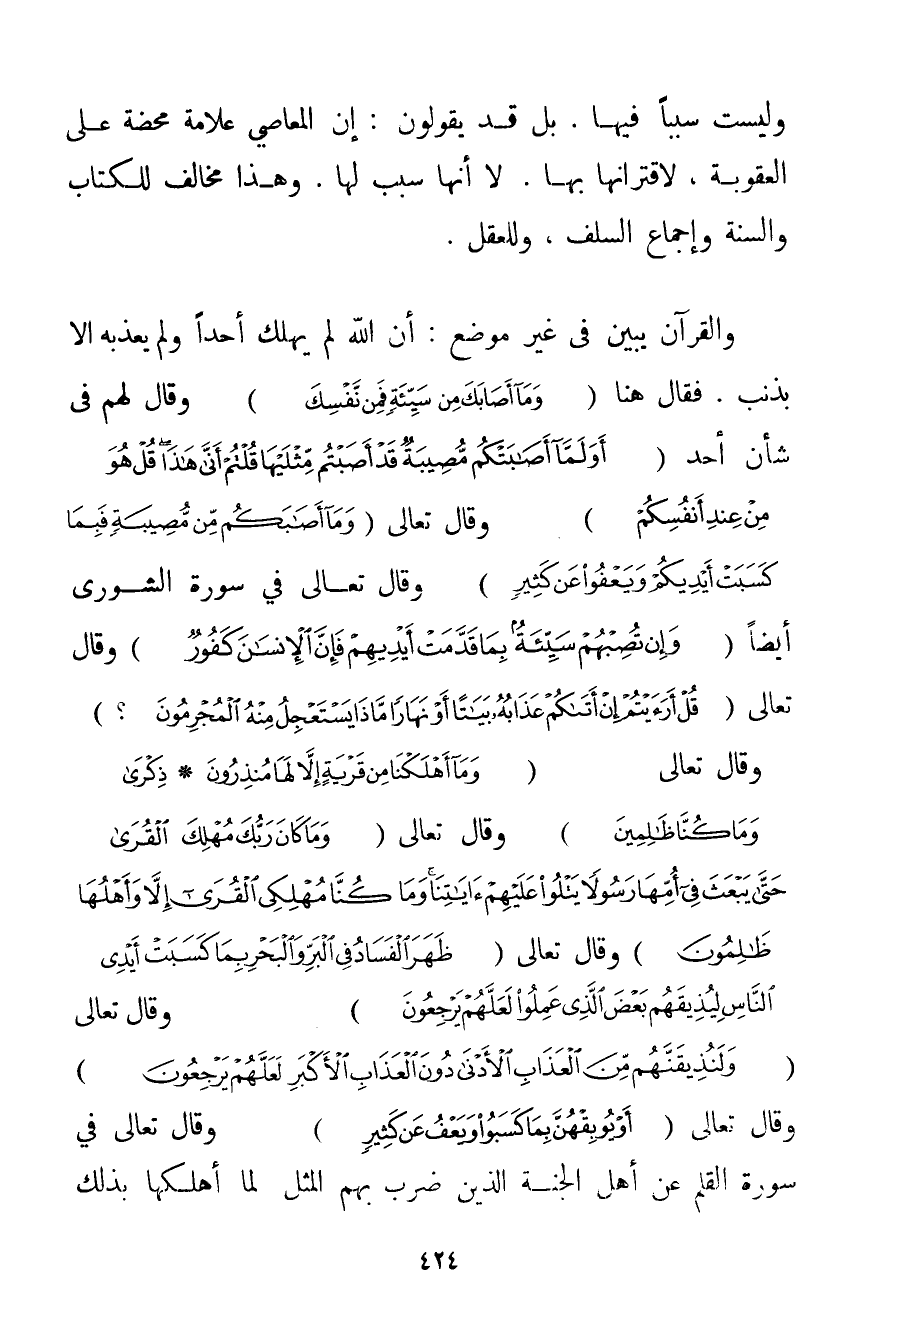 وليست سبباً فيها . بل قد يقولون : إن المعاصي علامة محضة على
العقوبة ، لاقترانها بها . لا أنها سبب لها . وهذا مخالف للكتاب
والسنة وإجماع السلف ، وللعقل .
والقرآن يبين فى غير موضع : أن الله لم يهلك أحداً ولم يعذبه الا
بذنب . فقال هنا ( وَمَآ أَصَابَكَ مِن سَيِّئَةٍ فَمِن نَّفْسِكَ ) وقال لهم فى
شأن أحد ( أَوَلَمَّآ أَصَٰبَتْكُم مُّصِيبَةٌ قَدْ أَصَبْتُم مِّثْلَيْهَا قُلْتُمْ أَنَّىٰ هَٰذَا ۖ قُلْ هُوَ
مِنْ عِندِ أَنفُسِكُمْ ) وقال تعالى ( وَمَآ أَصَٰبَكُم مِّن مُّصِيبَةٍ فَبِمَا
كَسَبَتْ أَيْدِيكُمْ وَيَعْفُوا۟ عَن كَثِيرٍ ) وقال تعالى في سورة الشورى
أيضاً ( وَإِن تُصِبْهُمْ سَيِّئَةٌۢ بِمَا قَدَّمَتْ أَيْدِيهِمْ فَإِنَّ ٱلْإِنسَٰنَ كَفُورٌ ) وقال
تعالى ( قُلْ أَرَءَيْتُمْ إِنْ أَتَىٰكُمْ عَذَابُهُۥ بَيَٰتًا أَوْ نَهَارًا مَّاذَا يَسْتَعْجِلُ مِنْهُ ٱلْمُجْرِمُونَ ؟ )
وقال تعالى ( وَمَآ أَهْلَكْنَا مِن قَرْيَةٍ إِلَّا لَهَا مُنذِرُونَ * ذِكْرَىٰ
وَمَا كُنَّا ظَٰلِمِينَ ) وقال تعالى ( وَمَا كَانَ رَبُّكَ مُهْلِكَ ٱلْقُرَىٰ
حَتَّىٰ يَبْعَثَ فِىٓ أُمِّهَا رَسُولًا يَتْلُوا۟ عَلَيْهِمْ ءَايَٰتِنَا ۚ وَمَا كُنَّا مُهْلِكِى ٱلْقُرَىٰٓ إِلَّا وَأَهْلُهَا
ظَٰلِمُونَ ) وقال تعالى ( ظَهَرَ ٱلْفَسَادُ فِى ٱلْبَرِّ وَٱلْبَحْرِ بِمَا كَسَبَتْ أَيْدِى
ٱلنَّاسِ لِيُذِيقَهُم بَعْضَ ٱلَّذِى عَمِلُوا۟ لَعَلَّهُمْ يَرْجِعُونَ ) وقال تعالى
( وَلَنُذِيقَنَّهُم مِّنَ ٱلْعَذَابِ ٱلْأَدْنَىٰ دُونَ ٱلْعَذَابِ ٱلْأَكْبَرِ لَعَلَّهُمْ يَرْجِعُونَ )
وقال تعالى ( أَوْ يُوبِقْهُنَّ بِمَا كَسَبُوا۟ وَيَعْفُ عَن كَثِيرٍ ) وقال تعالى في
سورة القلم عن أهل الجنة الذين ضرب بهم المثل لما أهلكها بذلك
٤٢٤